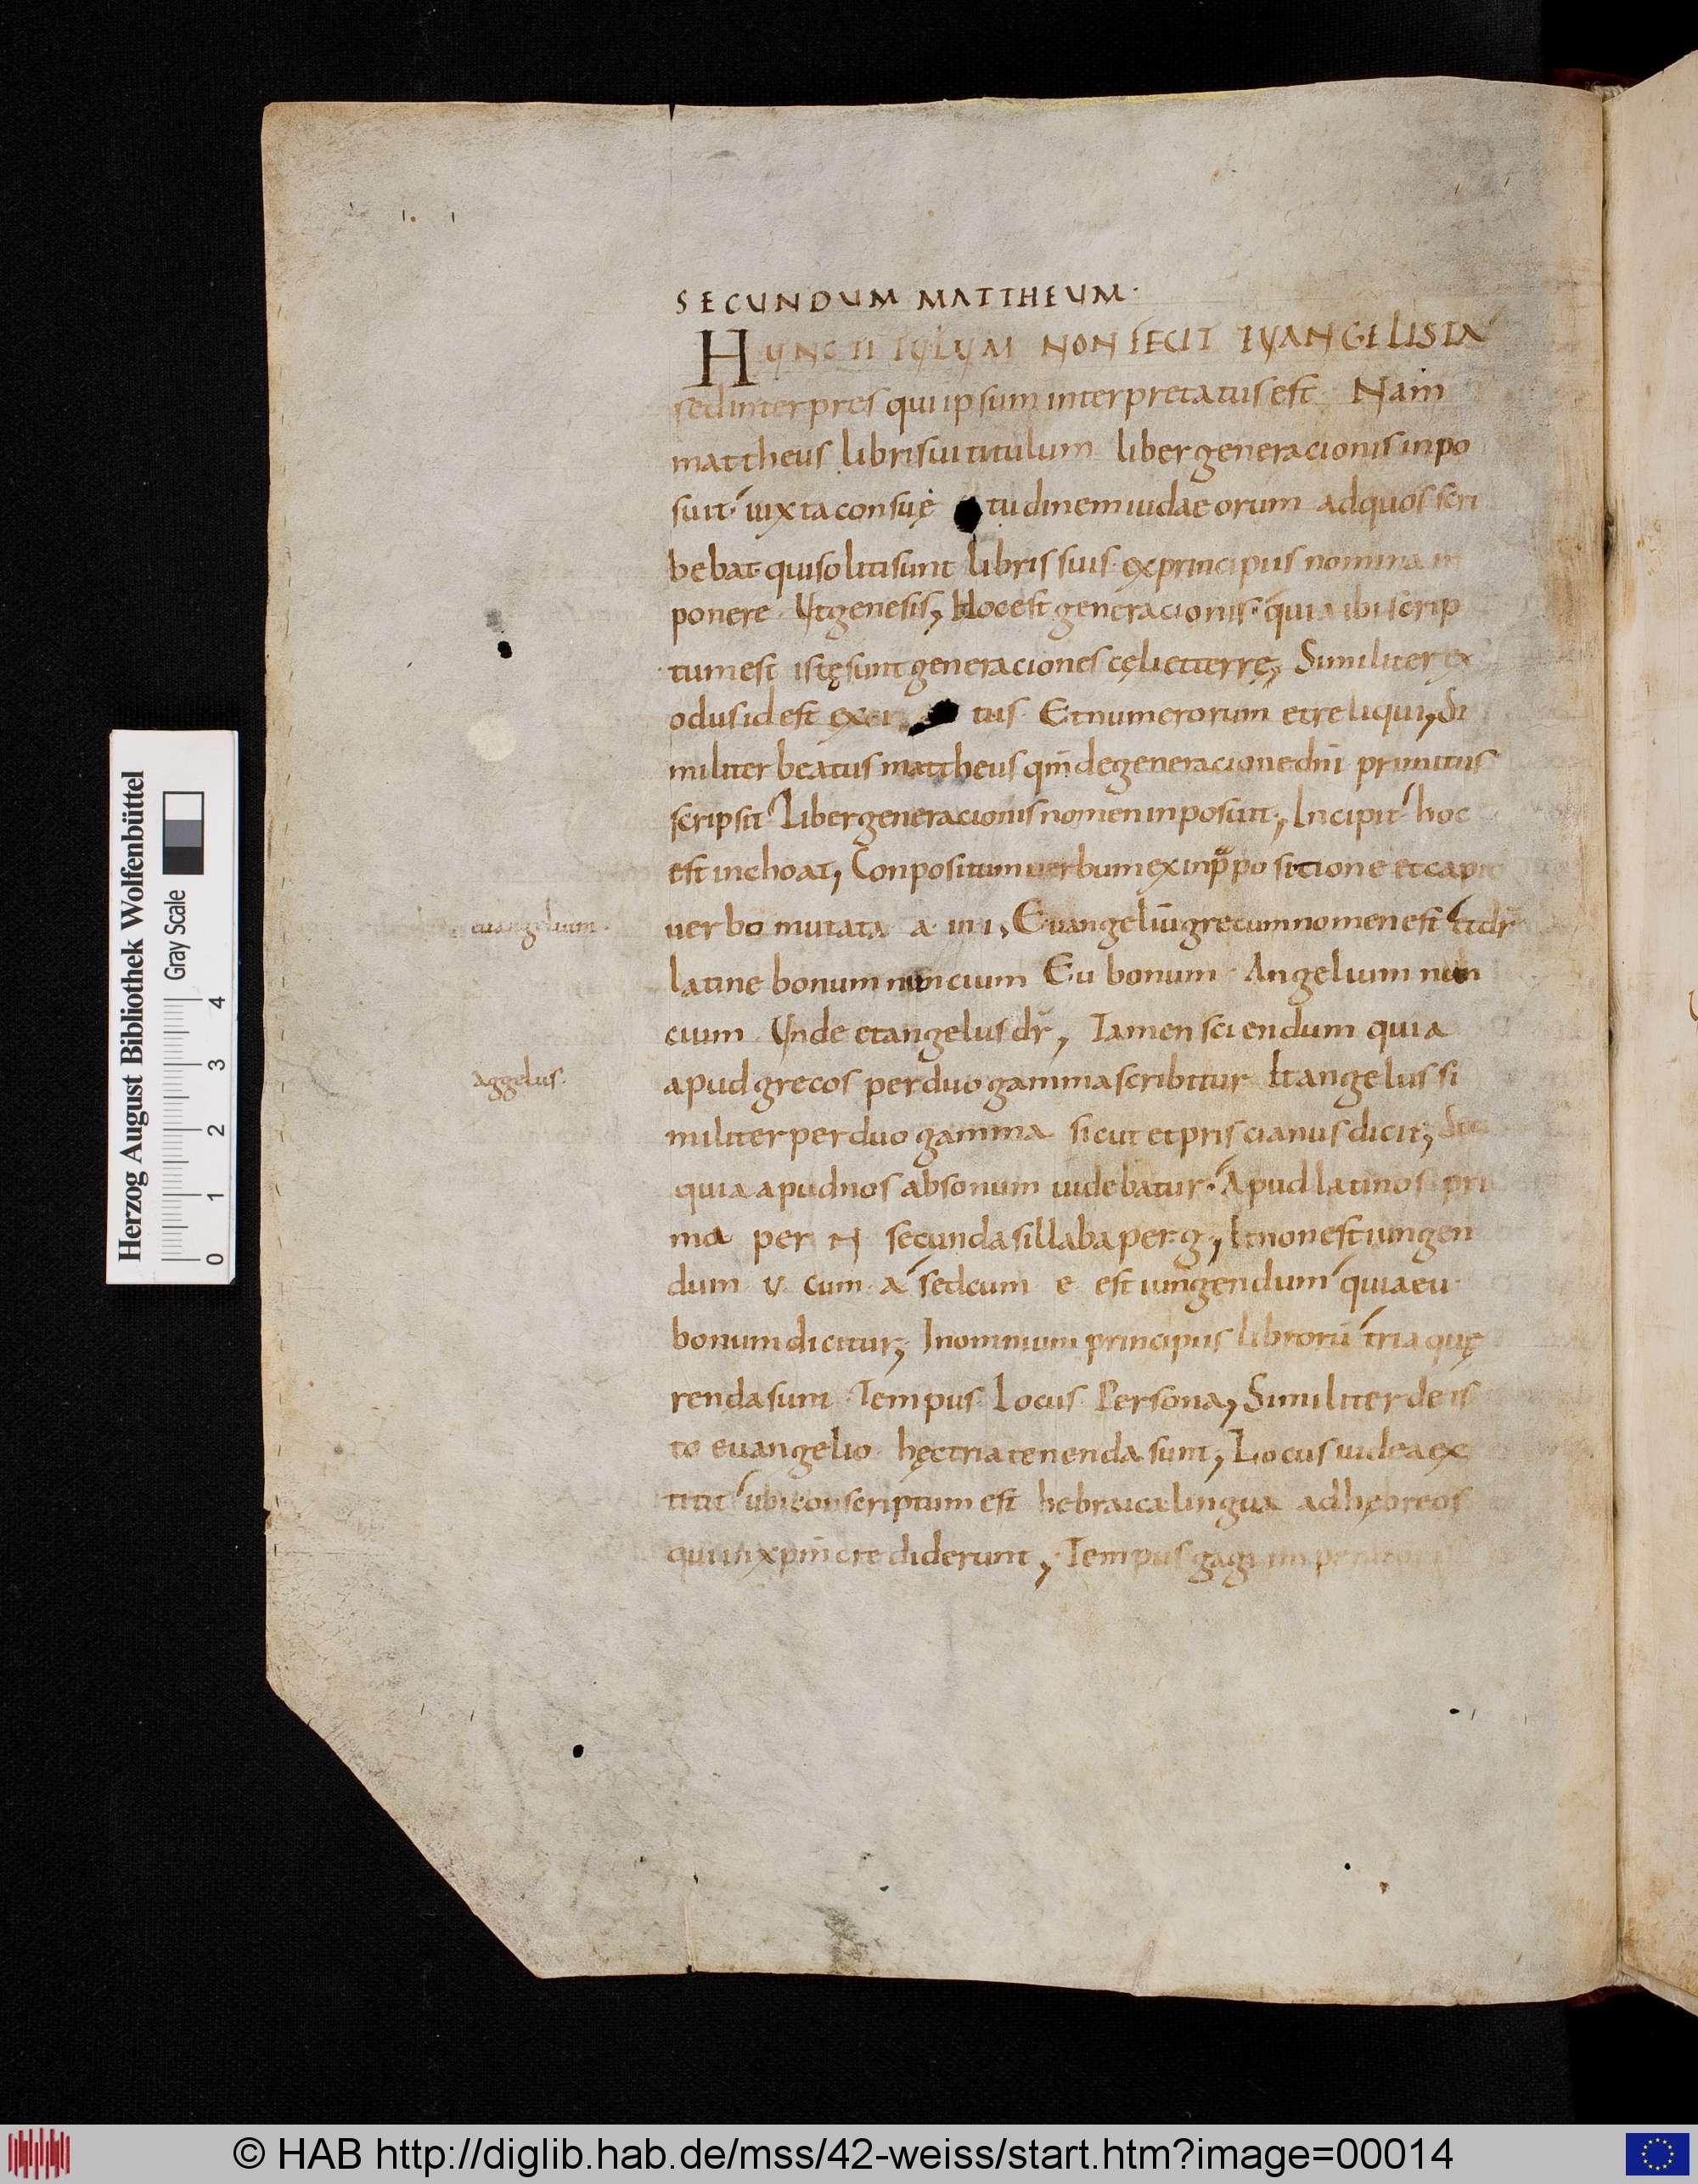 SECUNDUM MATTHEUM·
HUNC TITULUM NON FECIT EUANGELISTA
sed interpres qui ipsum interpretatus est· Nam
mattheus libri sui titulum liber generacionis inpo
suit· iuxta consue tudinem iudaeorum ad quos scri
bebat· qui soliti sunt libris suis· ex principiis nomina in
ponere· Ut genesis, Hoc est generacionis· quia ibi scrip
tum est istę sunt generaciones cęli et terrę, Similiter ex
odus id est exi tus· Et numerorum et reliqui, Si
militer beatus mattheus qm̄ de generacione dn̄i primitus
scripsit· Liber generacionis nomen inposuit, Incipit· hoc
est inchoat, Conpositum uerbum ex in p̄positione et capio
euangelium·
uerbo mutata a· in i, Euangeliū grecum nomen est· Et dr̄
latine bonum nuncium Eu bonum· Angelium nun
cium Unde et angelus dr̄, Tamen sciendum quia
aggelus·
apud grecos per duo gamma scribitur Et angelus si
militer per duo gamma sicut et priscianus dicit; Sed
quia apud nos absonum uidebatur· Apud latinos pri
ma per N secunda sillaba per g, Et non est iungen
dum u· cum· a· sed cum e est iungendum· quia eu·
bonum dicitur; In omnium principiis librorū tria quę
renda sunt· Tempus· Locus· Persona, Similiter de is
to euangelio· hęc tria tenenda sunt, Locus iudea ex
titit· ubi conscriptum est hebraica lingua ad hębreos
qui in xp̄m crediderunt, Tempus gagi imperatoris
Herzog August Bibliothek Wolfenbüttel
Gray Scale
0 1 2 3 4
© HAB http://diglib.hab.de/mss/42-weiss/start.htm?image=00014